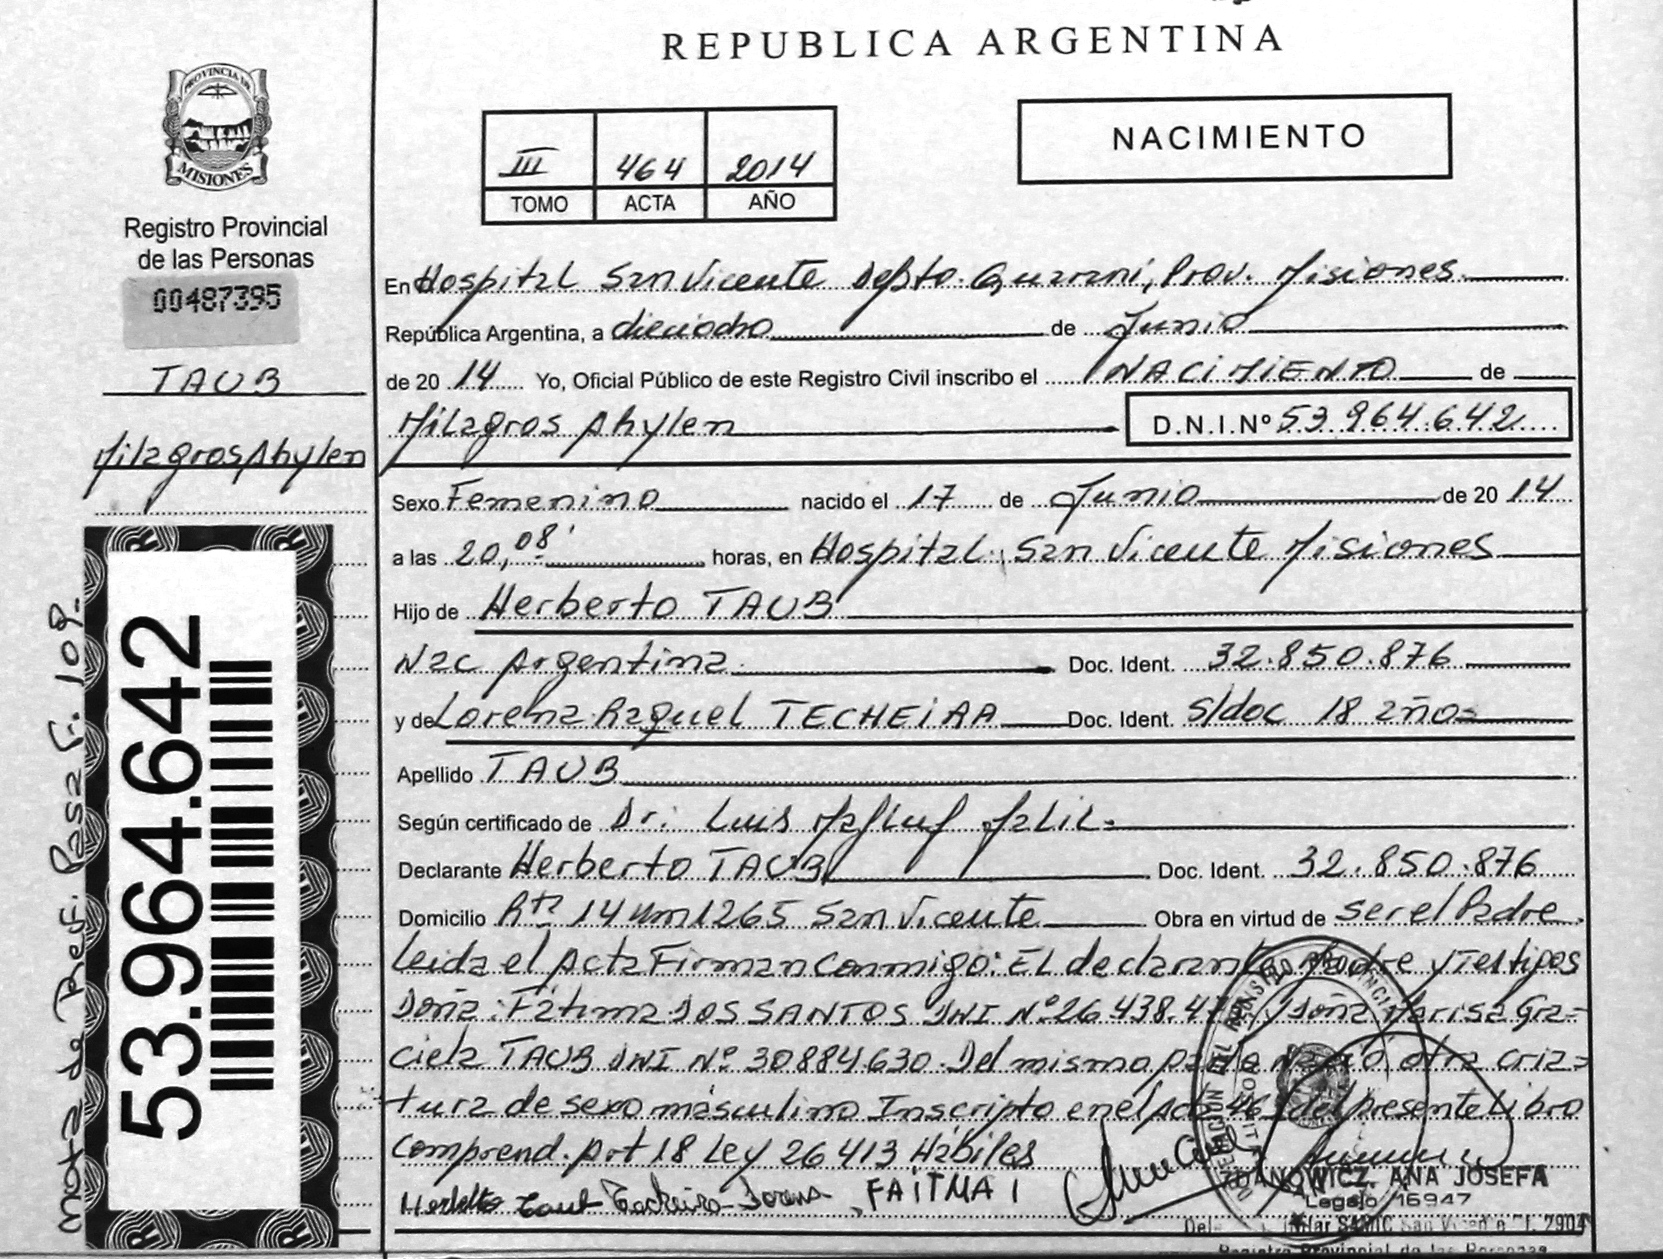 REPUBLICA ARGENTINA
PROVINCIA DE
MISIONES
Registro Provincial
de las Personas
00487395
TAUB
Milagros Ahylen
53.964.642
nota de Ref. Pasa F. 109.
III 464 2014
TOMO ACTA AÑO
NACIMIENTO
En Hospital San Vicente Depto. Guarani, Prov. Misiones.
República Argentina, a dieciocho de Junio
de 20 14 Yo, Oficial Público de este Registro Civil inscribo el NACIMIENTO de
Milagros Ahylen D.N.I.Nº 53.964.642
Sexo Femenino nacido el 17 de Junio de 20 14
a las 20,08' horas, en Hospital San Vicente Misiones
Hijo de Herberto TAUB
Nac Argentina. Doc. Ident. 32.850.876
y de Lorena Raquel TECHEIRA Doc. Ident. s/doc 18 años
Apellido TAUB
Según certificado de Dr: Luis
Declarante Herberto TAUB Doc. Ident. 32.850.876
Domicilio Rta 14 Km 1265 San Vicente Obra en virtud de ser el Padre.
Leida el Acta Firman conmigo: El declarante, Madre y Testigos
Doña: Fátima DOS SANTOS DNI Nº 26.438.4 y Doña Marisa Gra=
ciela TAUB DNI Nº 30884.630. Del mismo parto Nació otra cria=
tura de sexo másculino Inscripto en el Acta 46 del presente Libro
Comprend. Art 18 Ley 26 413 Hábiles
Herberto Taub Techeira Lorena FAITMA
ZDANOWICZ, ANA JOSEFA
Legajo 16947
Registro Provincial de las Personas